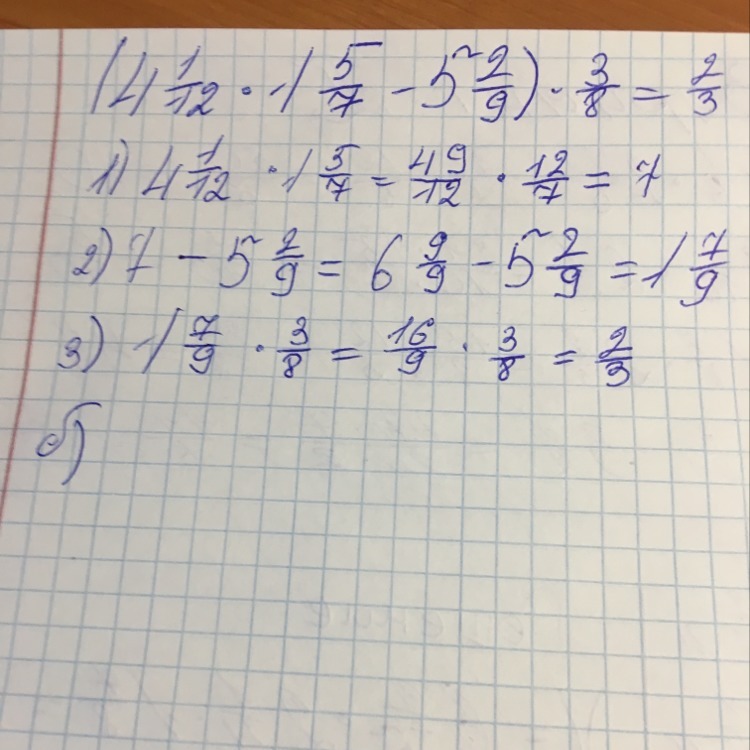 (4 1/12 · 1 5/7 - 5 2/9) · 3/8 = 2/3
1) 4 1/12 · 1 5/7 = 49/12 · 12/7 = 7
2) 7 - 5 2/9 = 6 9/9 - 5 2/9 = 1 7/9
3) 1 7/9 · 3/8 = 16/9 · 3/8 = 2/3
б)